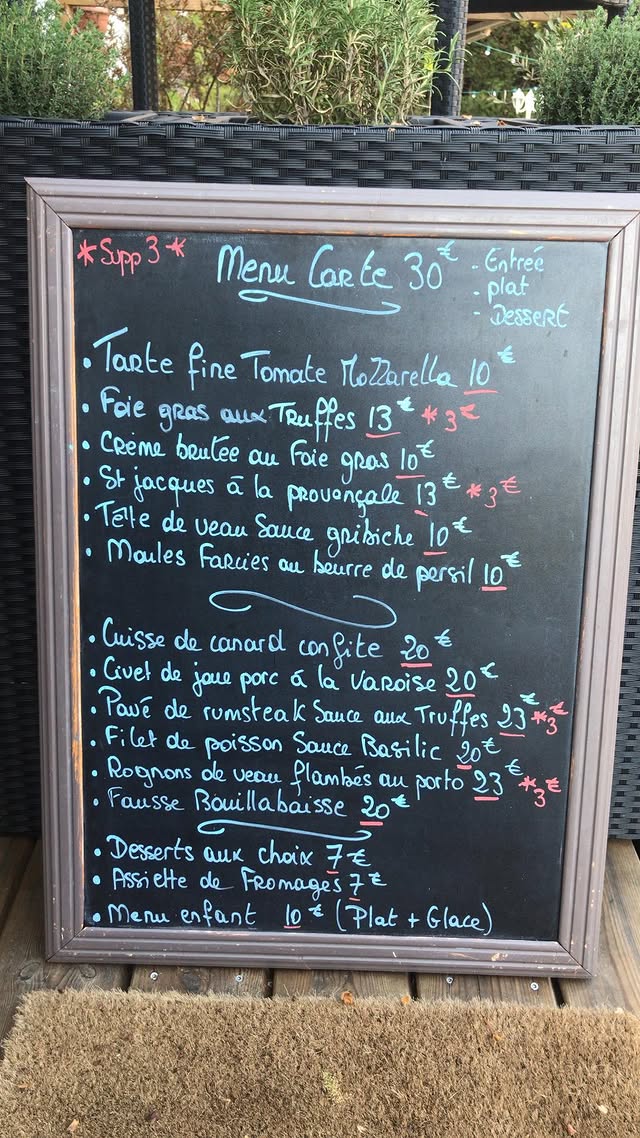 *Supp 3*
Menu Carte 30€
- Entrée
- plat
- Dessert
• Tarte fine Tomate Mozzarella 10€
• Foie gras aux Truffes 13€ *3€
• Crème brulée au Foie gras 10€
• St jacques à la provençale 13€ *3€
• Tête de veau Sauce gribiche 10€
• Moules Farcies au beurre de persil 10€
• Cuisse de canard confite 20€
• Civet de joue porc à la Varoise 20€
• Pavé de rumsteak Sauce aux Truffes 23€ *3€
• Filet de poisson Sauce Basilic 20€
• Rognons de veau flambés au porto 23€ *3€
• Fausse Bouillabaisse 20€
• Desserts aux choix 7€
• Assiette de Fromages 7€
• Menu enfant 10€ (Plat + Glace)